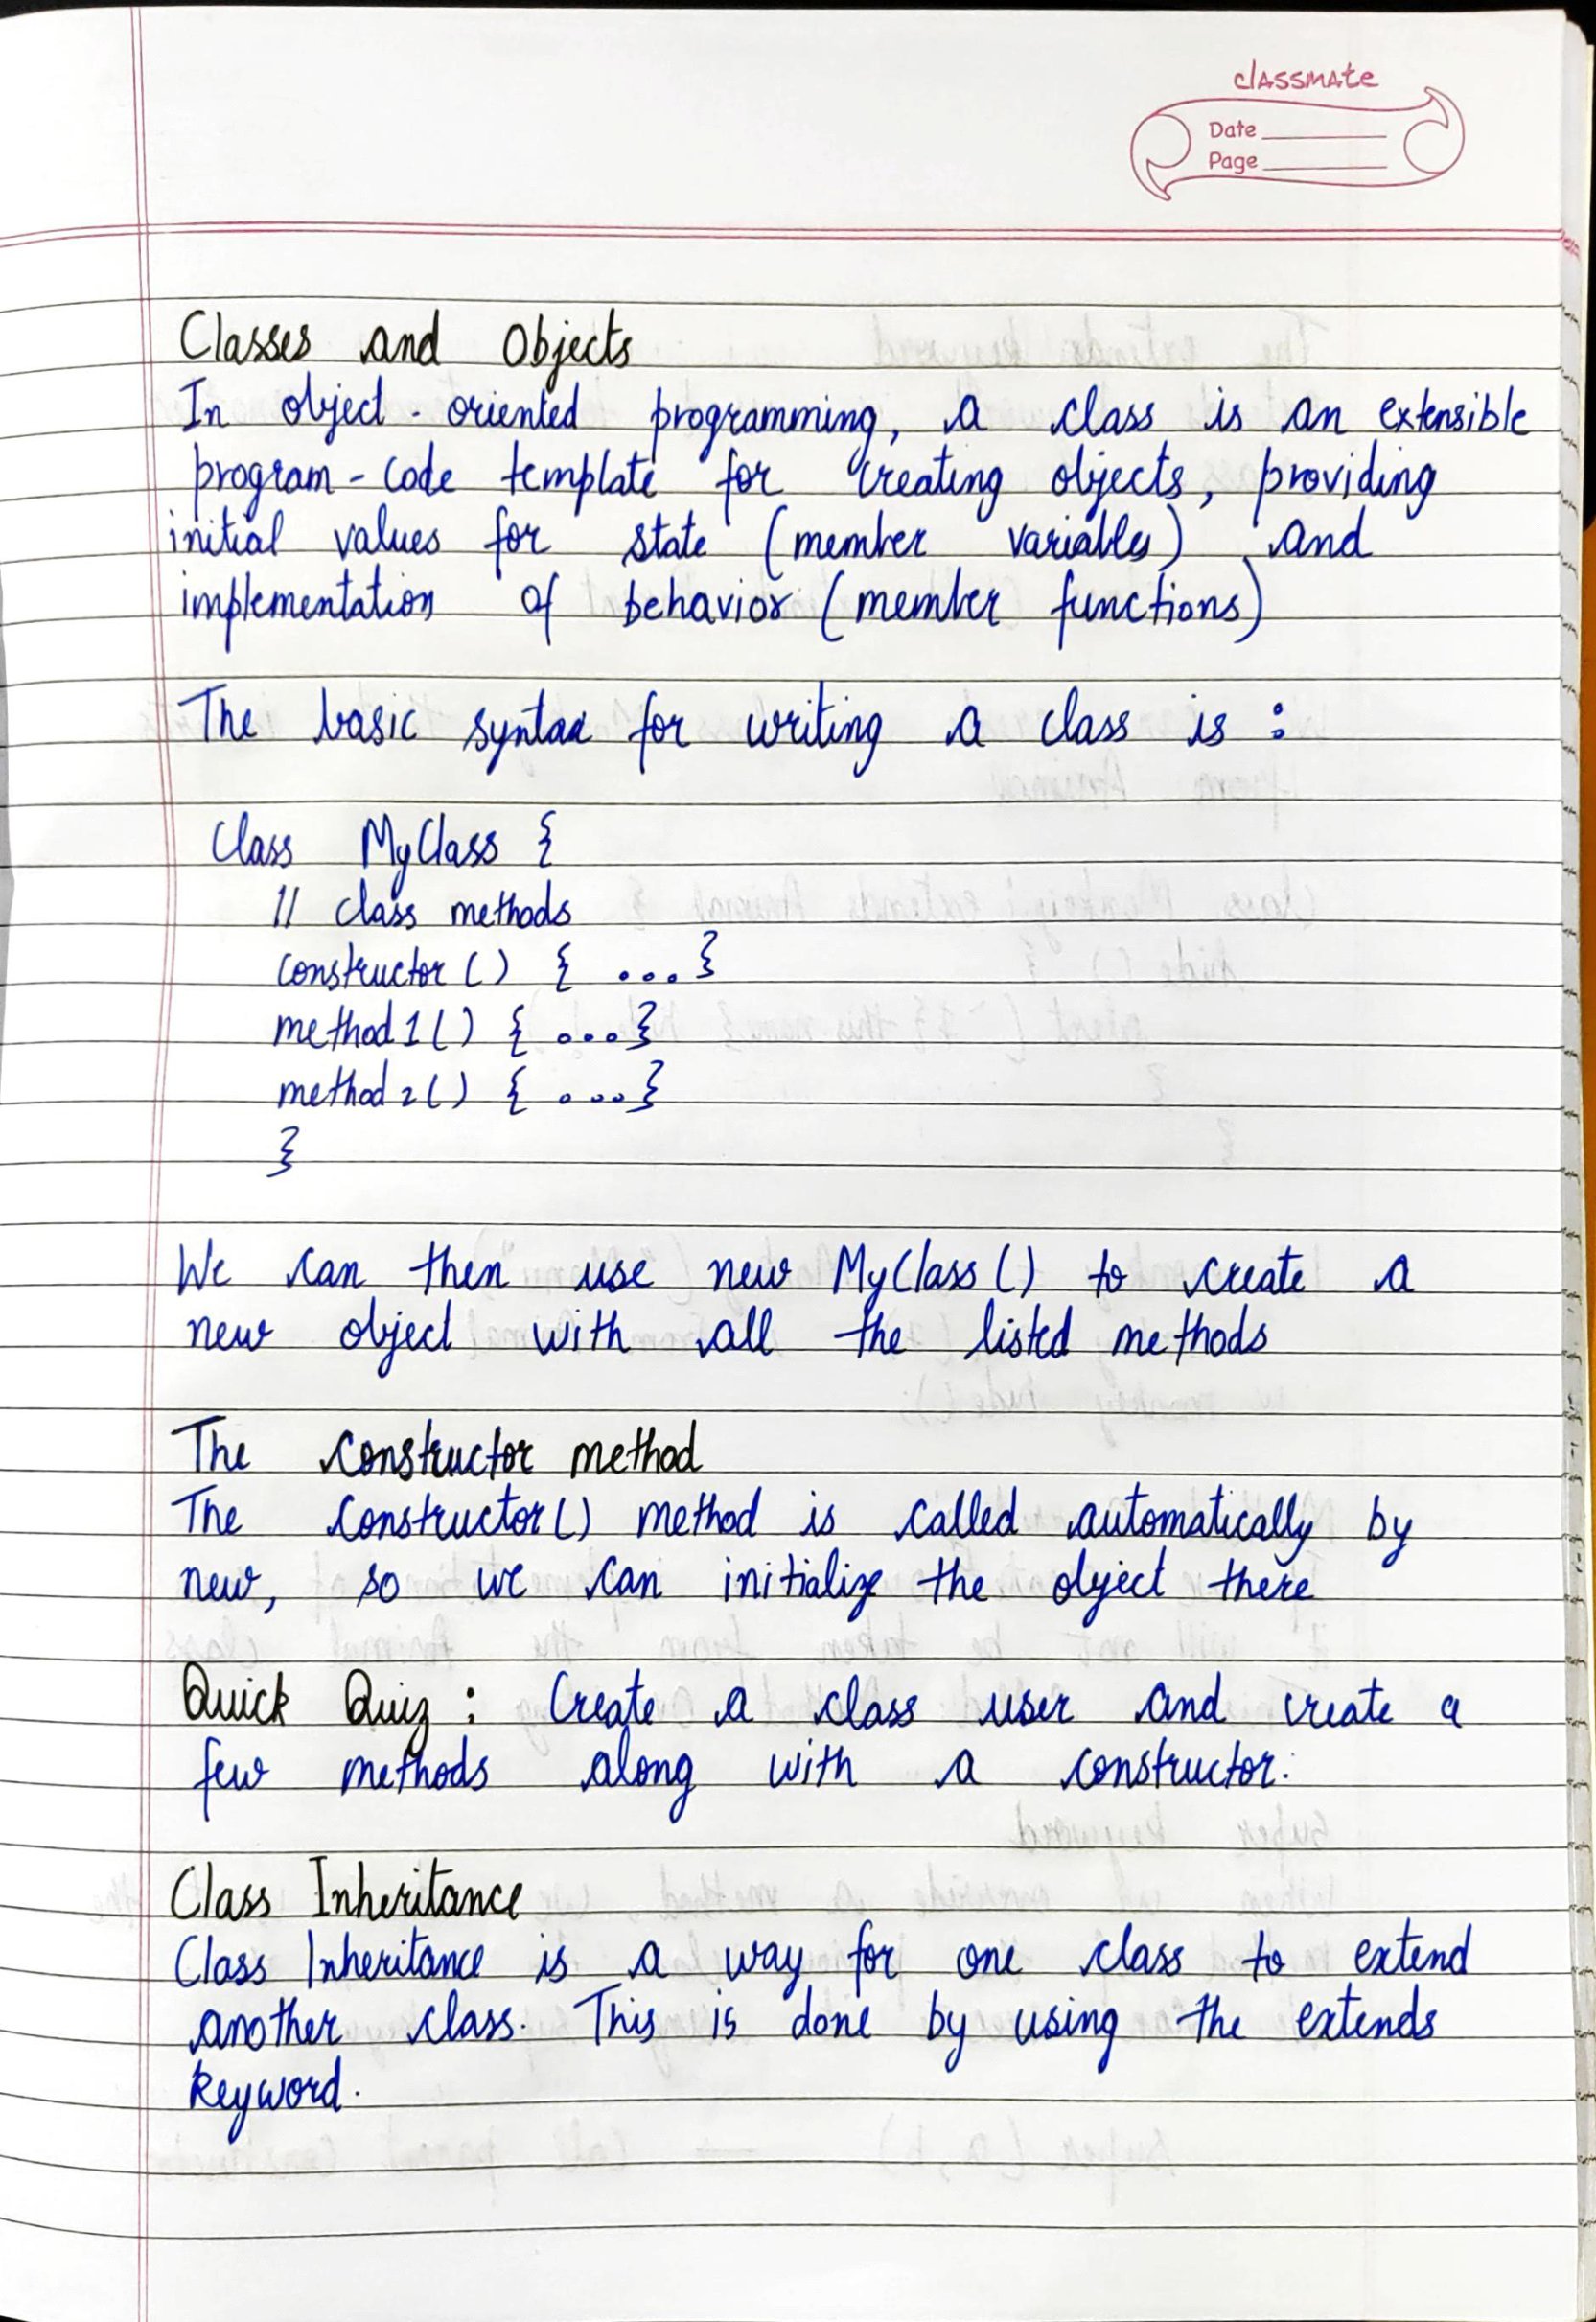 classmate
Date
Page
Classes and Objects
In object-oriented programming, a class is an extensible
program-code template for creating objects, providing
initial values for state (member variables) and
implementation of behavior (member functions)
The basic syntax for writing a class is :
Class MyClass {
// class methods
constructor () { ...}
method1() { ...}
method2() { ...}
}
We can then use new MyClass () to create a
new object with all the listed methods
The constructor method
The constructor() method is called automatically by
new, so we can initialize the object there
Quick Quiz : Create a class user and create a
few methods along with a constructor.
Class Inheritance
Class Inheritance is a way for one class to extend
another class. This is done by using the extends
keyword.